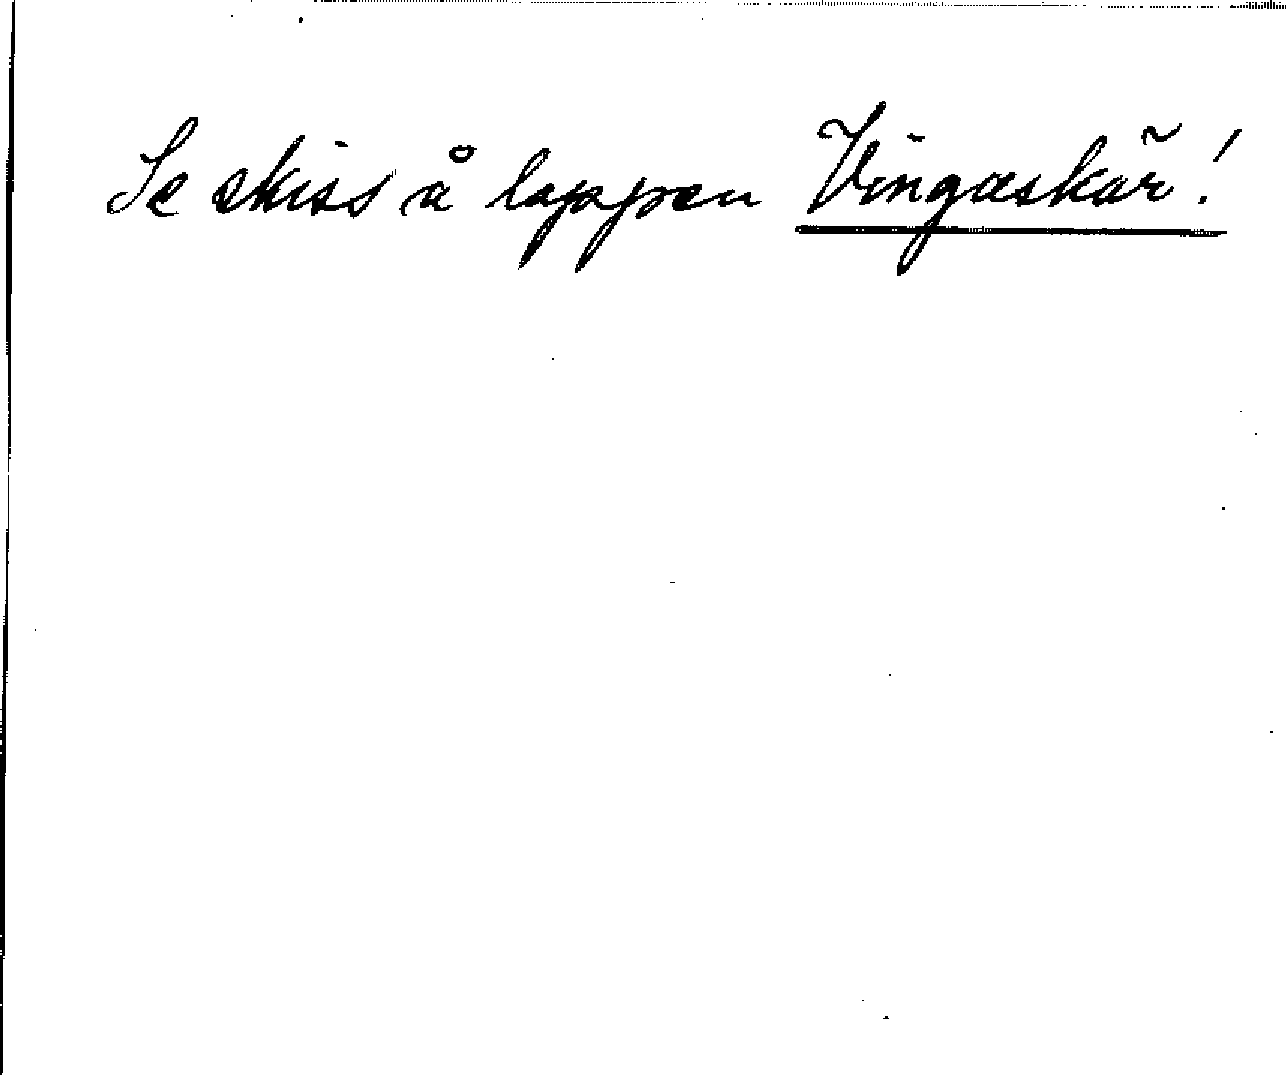 Se skiss å lappen Vingaskär!